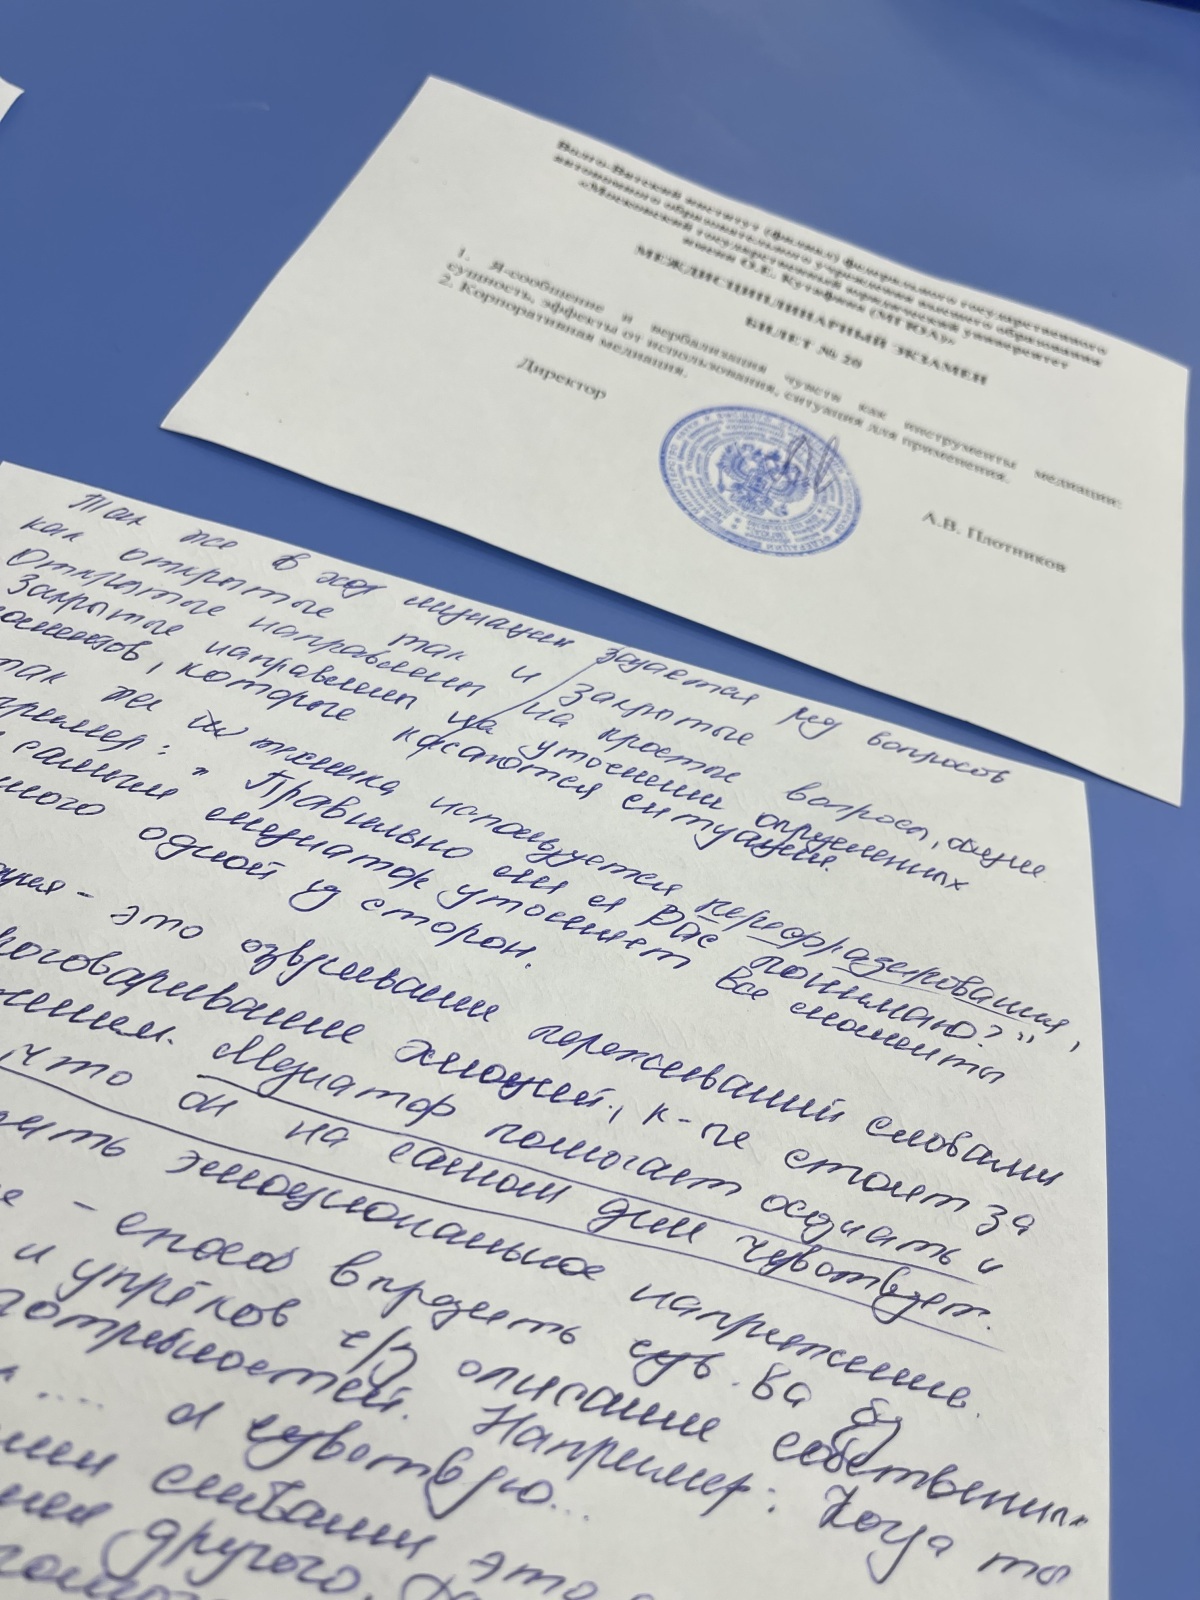 Волго-Вятский институт (филиал) федерального государственного
автономного образовательного учреждения высшего образования
«Московский государственный юридический университет
имени О.Е. Кутафина (МГЮА)»
МЕЖДИСЦИПЛИНАРНЫЙ ЭКЗАМЕН
БИЛЕТ № 20
1. Я-сообщение и вербализация чувств как инструменты медиации:
сущность, эффекты от использования, ситуация для применения.
2. Корпоративная медиация.
Директор
А.В. Плотников
Так же в ходе медиации задается ряд вопросов
как открытые так и закрытые
Открытые направлены на простые вопросы, общие.
Закрытые направлены на уточнении определенных
моментов, которые касаются ситуации.
так же техника используется перефразирования,
например: "Правильно ли я Вас понимаю?",
самым медиатор уточняет все моменты
одной из сторон.
- это озвучивание переживаний словами
проговаривание эмоций, к-ые стоит за
Медиатор помогает осознать и
что он на самом деле чувствует.
эмоциональное напряжение.
- способ выразить чув. ва без
и упрёков ч/з описание собственных
потребностей. Например: Когда ты
.... я чувствую...
словами это
другого.